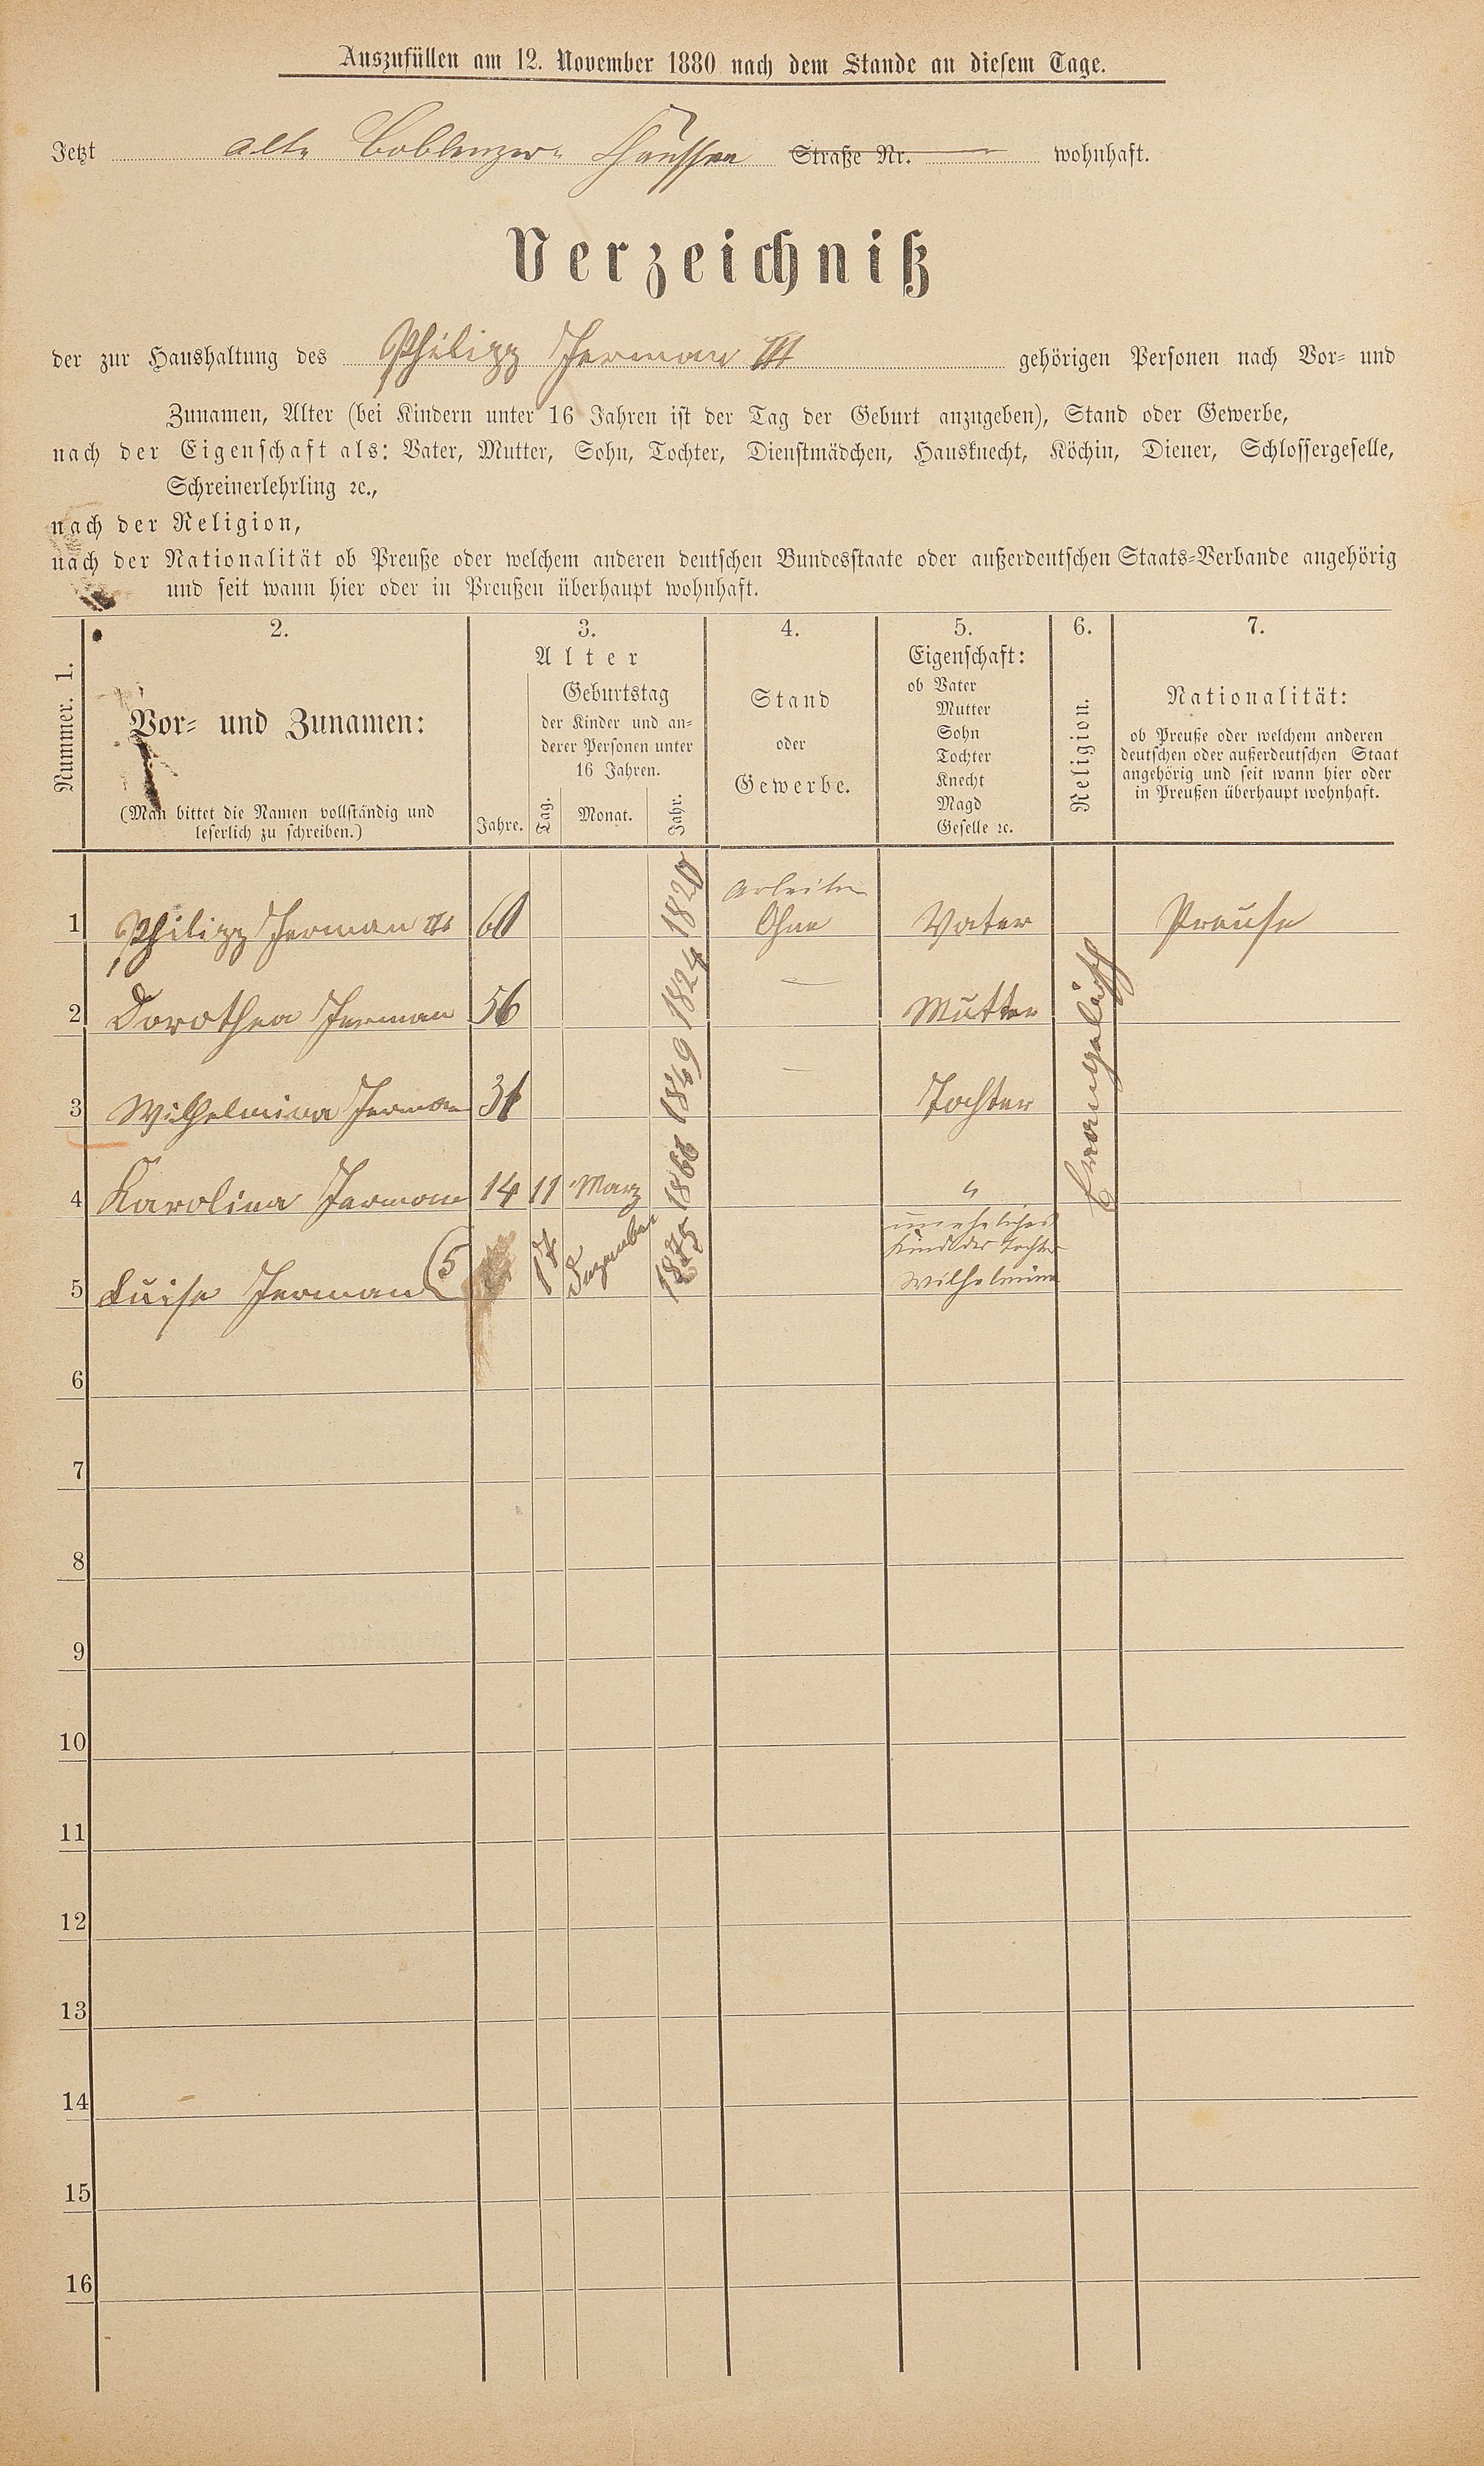 Auszufüllen am 12. November 1880 nach dem Stande an diesem Tage.
Jetzt alte Coblenzer- Straße Nr. wohnhaft.
Verzeichniß
der zur Haushaltung des Philipp Jerman III gehörigen Personen nach Vor- und
Zunamen, Alter (bei Kindern unter 16 Jahren ist der Tag der Geburt anzugeben), Stand oder Gewerbe,
nach der Eigenschaft als: Vater, Mutter, Sohn, Tochter, Dienstmädchen, Hausknecht, Köchin, Diener, Schlossergeselle,
Schreinerlehrling ꝛc.,
nach der Religion,
nach der Nationalität ob Preuße oder welchem anderen deutschen Bundesstaate oder außerdeutschen Staats-Verbande angehörig
und seit wann hier oder in Preußen überhaupt wohnhaft.
Nummer. 1.
2.
Vor- und Zunamen:
(Man bittet die Namen vollständig und
leserlich zu schreiben.)
3.
Alter
Jahre.
Geburtstag
der Kinder und an-
derer Personen unter
16 Jahren.
Tag. Monat. Jahr.
4.
Stand
oder
Gewerbe.
5.
Eigenschaft:
ob Vater
Mutter
Sohn
Tochter
Knecht
Magd
Geselle ꝛc.
6.
Religion.
7.
Nationalität:
ob Preuße oder welchem anderen
deutschen oder außerdeutschen Staat
angehörig und seit wann hier oder
in Preußen überhaupt wohnhaft.
Arbeiter
1 Philipp Jerman III 60 1820 Ohne Vater Preuße
2 Dorothea Jerman 56 1824 — Mutter
3 Wilhelmina Jerman 31 1849 — Tochter
Evangelisch
4 Karolina Jerman 14 11 März 1866 "
unehliches
Kind der Tochter
5 Luise Jerman (5 17 Dezember 1875 Wilhelmina
6
7
8
9
10
11
12
13
14
15
16